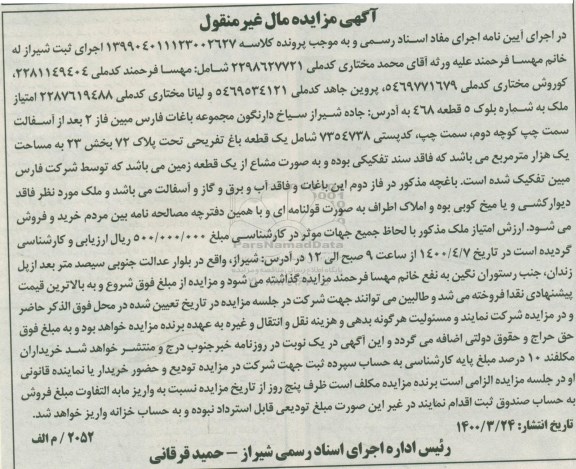 آگهی مزایده مال غیر منقول
در اجرای آیین نامه اجرای مفاد اسناد رسمی و به موجب پرونده کلاسه ۱۳۹۹۰۴۰۱۱۱۲۳۰۰۲۶۲۷ اجرای ثبت شیراز له
خانم مهسا فرحمند علیه ورثه اقای محمد مختاری کدملی ۲۲۹۸۶۲۷۷۲۱ شامل: مهسا فرحمند کدملی ۲۲۸۱۱۴۹۴۰۴،
کوروش مختاری کدملی ۵۴۶۹۷۷۱۶۷۹، پروین جاهد کدملی ۵۴۶۹۵۳۴۱۲۱ و لیانا مختاری کدملی ۲۲۸۷۶۱۹۴۸۸ امتیاز
ملک به شماره بلوک ۵ قطعه ۴۶۸ به آدرس: جاده شیراز سیاخ دارنگون مجموعه باغات فارس مبین فاز ۲ بعد از آسفالت
سمت چپ کوچه دوم، سمت چپ، کدپستی ۷۳۵۴۷۳۸ شامل یک قطعه باغ تفریحی تحت پلاک ۷۲ بخش ۲۳ به مساحت
یک هزار مترمربع می باشد که فاقد سند تفکیکی بوده و به صورت مشاع از یک قطعه زمین می باشد که توسط شرکت فارس
مبین تفکیک شده است. باغچه مذکور در فاز دوم این باغات و فاقد آب و برق و گاز و آسفالت می باشد و ملک مورد نظر فاقد
دیوارکشی و یا میخ کوبی بوده و املاک اطراف به صورت قولنامه ای و با همین دفترچه مصالحه نامه بین مردم خرید و فروش
می شود. ارزش امتیاز ملک مذکور با لحاظ جمیع جهات موثر در کارشناسی مبلغ ۵۰۰/۰۰۰/۰۰۰ ریال ارزیابی و کارشناسی
گردیده است در تاریخ ۱۴۰۰/۴/۷ از ساعت ۹ صبح الی ۱۲ در آدرس: شیراز، واقع در بلوار عدالت جنوبی سیصد متر بعد از پل
زندان، جنب رستوران نگین به نفع خانم مهسا فرحمند مزایده گذاشته می شود و مزایده از مبلغ فوق شروع و به بالاترین قیمت
پیشنهادی نقدا فروخته می شد و طالبین می توانند جهت شرکت در جلسه مزایده در تاریخ تعیین شده در محل فوق الذکر حاضر
و در مزایده شرکت نمایند و مسئولیت هرگونه بدهی و هزینه نقل و انتقال و غیره به عهده برنده مزایده خواهد بود و به مبلغ فوق
حق حراج و حقوق دولتی اضافه می گردد و این آگهی در یک نوبت در روزنامه خبرجنوب درج و منتشر خواهد شد. خریداران
مکلفند ۱۰ درصد مبلغ پایه کارشناسی به حساب سپرده ثبت جهت شرکت در مزایده تودیع و حضور خریدار یا نماینده قانونی
او در جلسه مزایده الزامی است برنده مزایده مکلف است ظرف پنج روز از تاریخ مزایده نسبت به واریز مابه التفاوت مبلغ فروش
به حساب صندوق ثبت اقدام نمایند در غیر این صورت مبلغ تودیعی قابل استرداد نبوده و به حساب خزانه واریز خواهد شد.
تاریخ انتشار: ۱۴۰۰/۳/۲۴
۲۰۵۲/م الف
رئیس اداره اجرای اسناد رسمی شیراز – حمید قرقانی
ParsNamadData